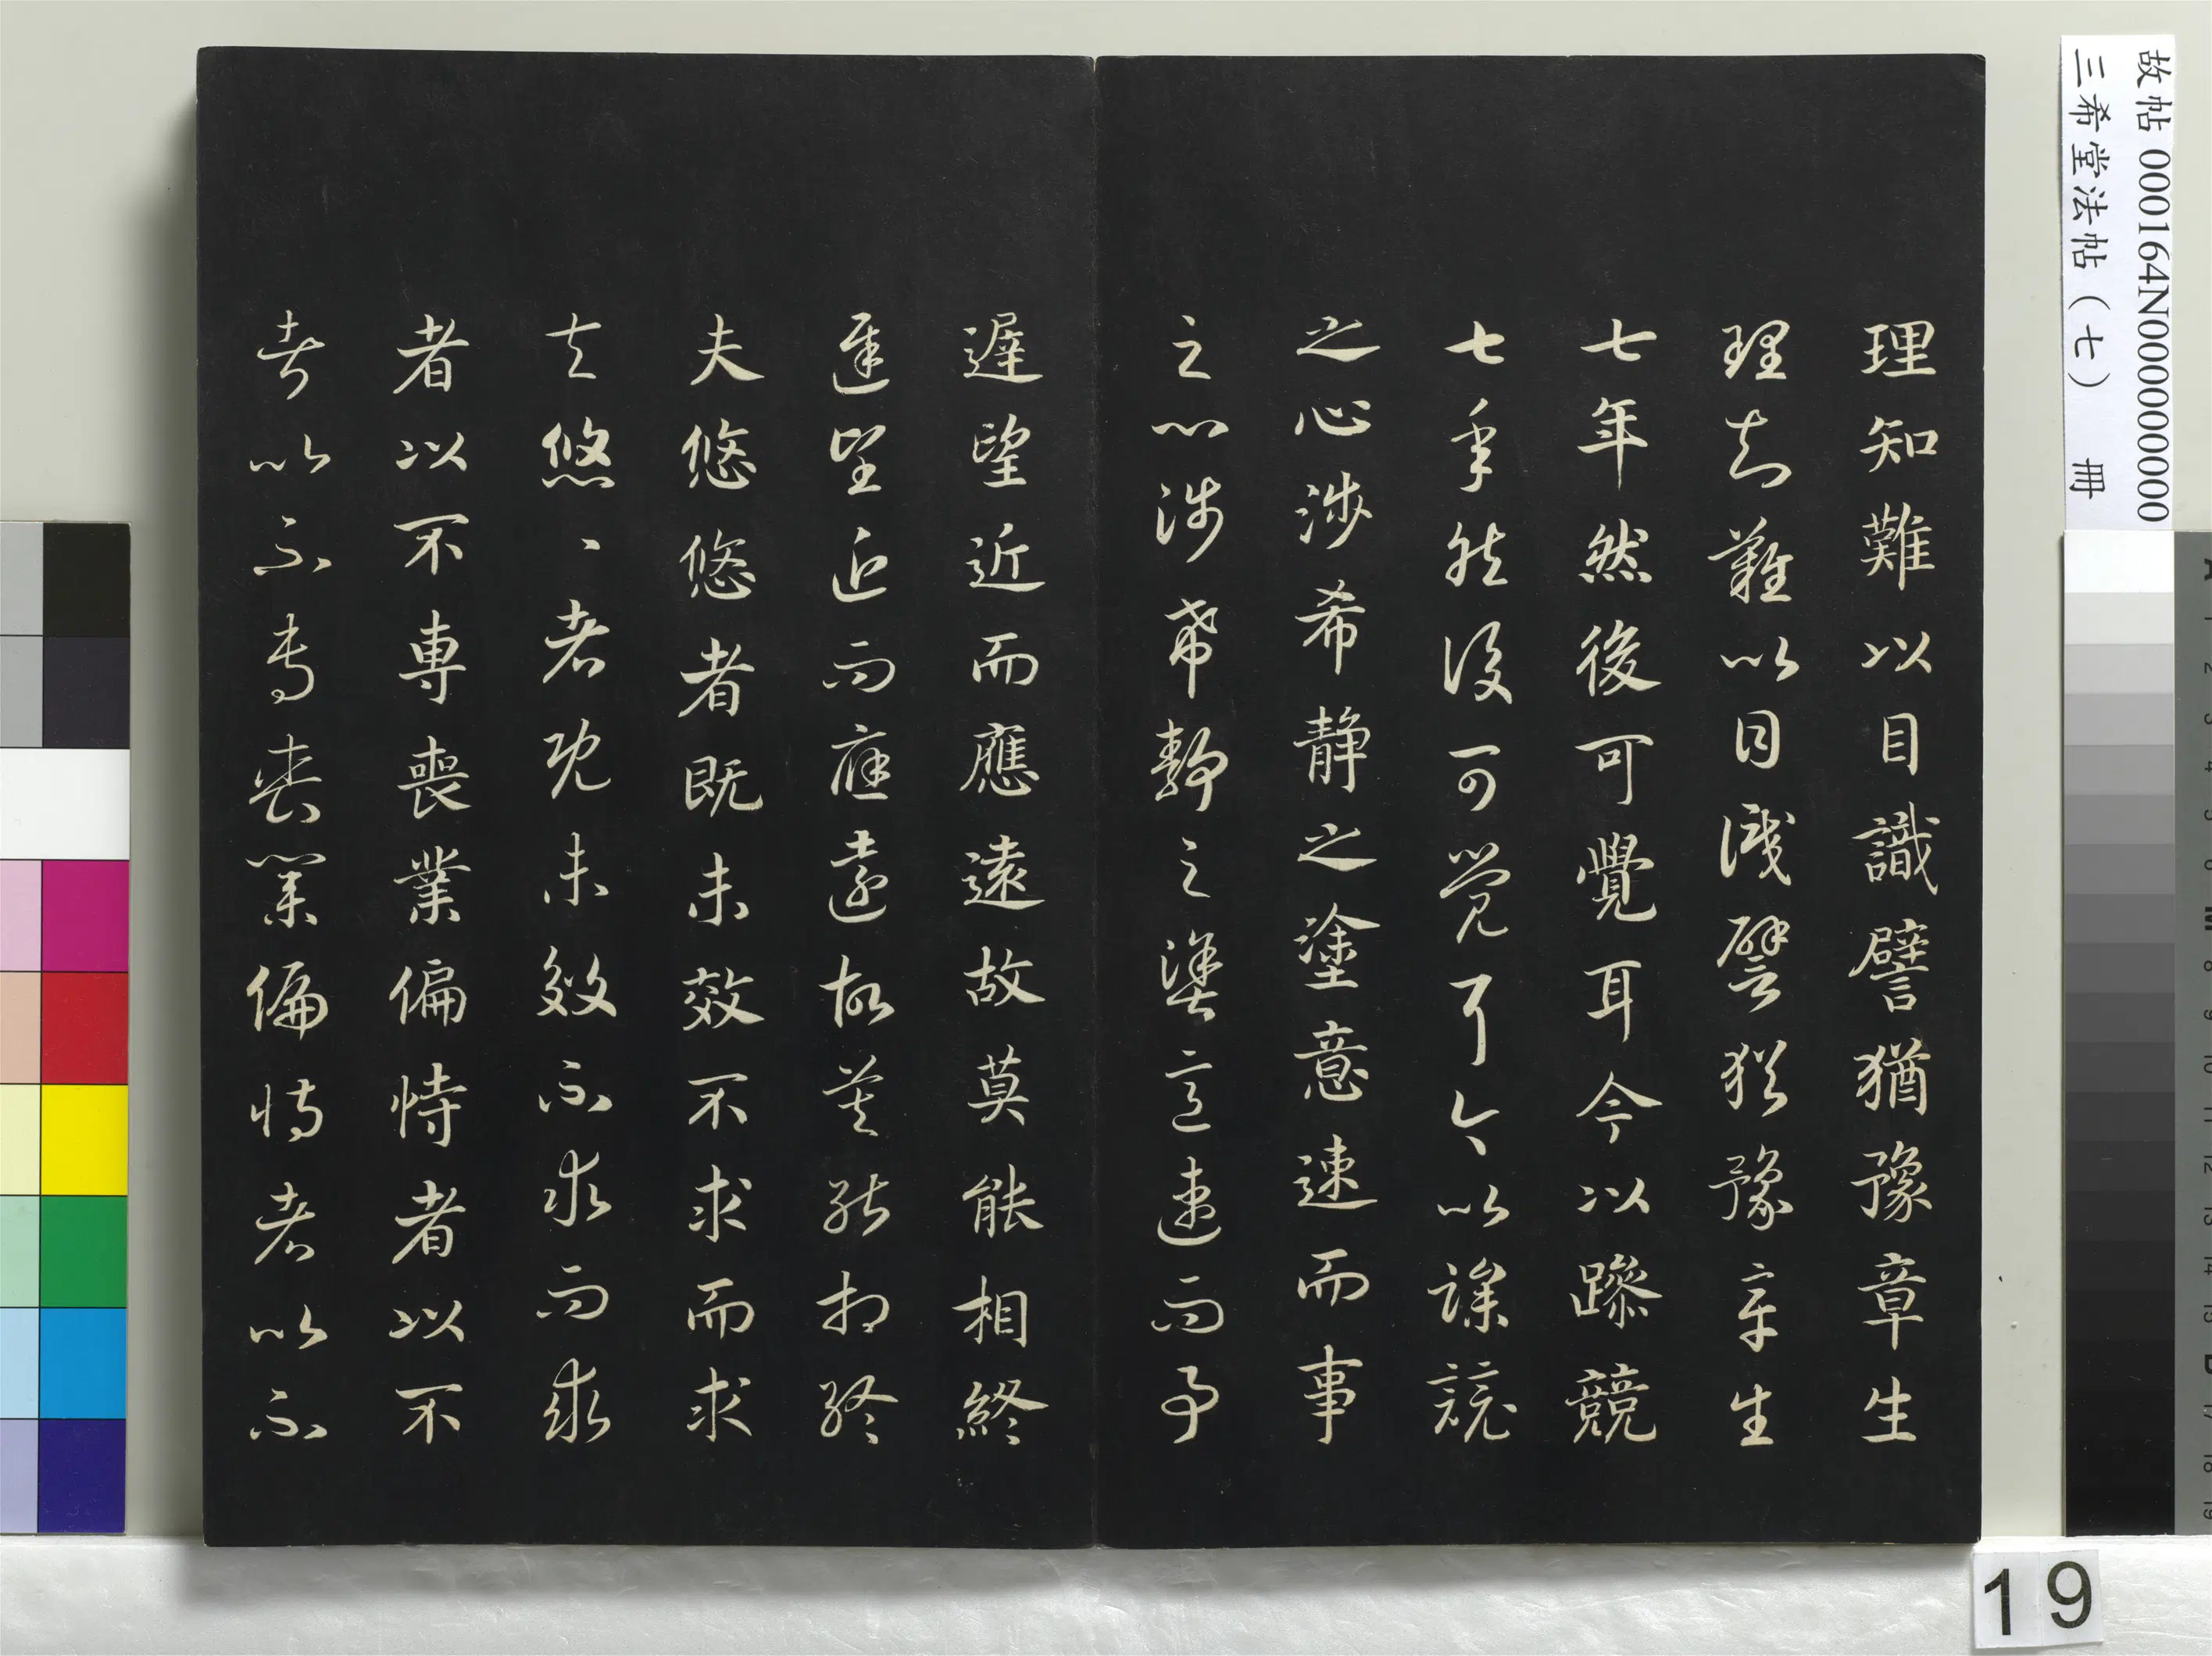 理知難以目識譬猶豫章生
理知難以目識譬猶豫章生
七年然後可覺耳今以躁競
七年然後可覺耳今以躁競
之心涉希静之塗意速而事
之心涉希静之塗意速而事
遲望近而應遠故莫能相終
遲望近而應遠故莫能相終
夫悠悠者既未效不求而求
夫悠、者既未效不求而求
者以不專喪業偏恃者以不
者以不專喪業偏恃者以不
故帖 000164N000000000
三希堂法帖(七) 冊
19